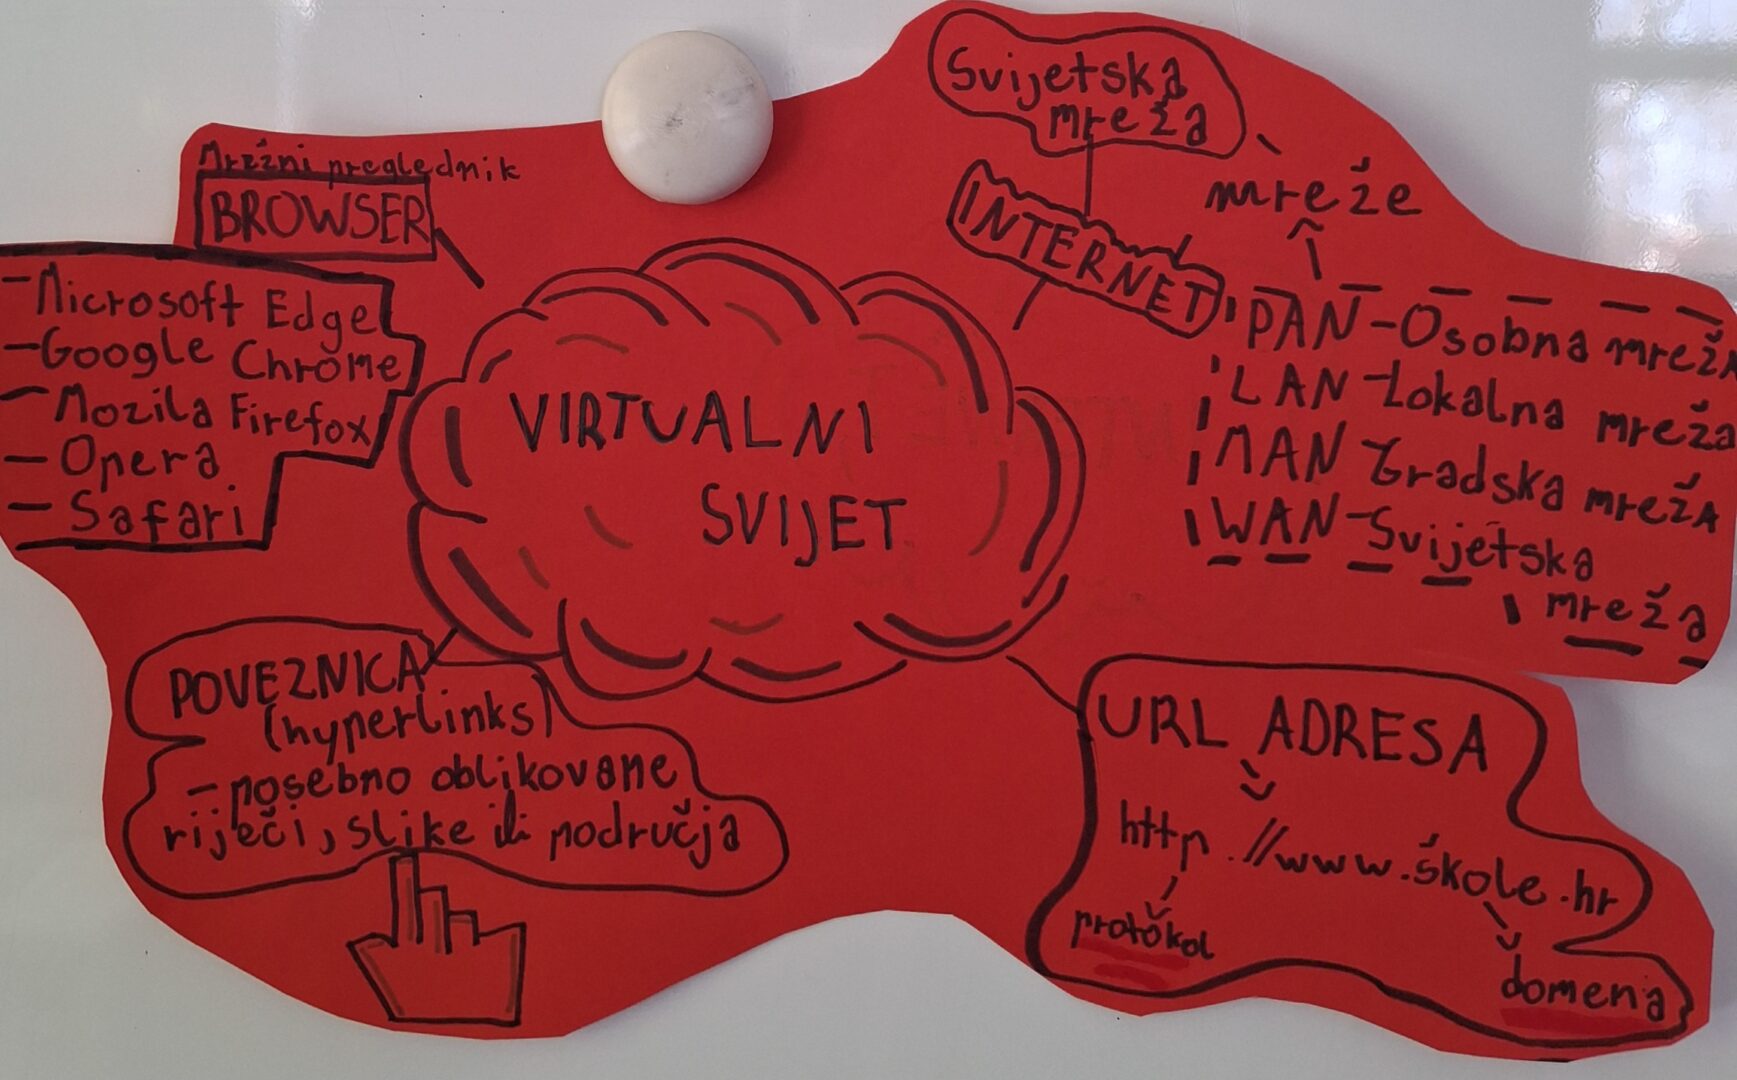 Svijetska
mreža
mreže
INTERNET
PAN - Osobna mreža
LAN - Lokalna mreža
MAN - Gradska mreža
WAN - Svijetska
mreža
Mrežni preglednik
BROWSER
- Microsoft Edge
- Google Chrome
- Mozila Firefox
- Opera
- Safari
VIRTUALNI
SVIJET
POVEZNICA
(hyperlinks)
- posebno oblikovane
riječi, slike ili područja
URL ADRESA
http.//www.škole.hr
protokol
domena